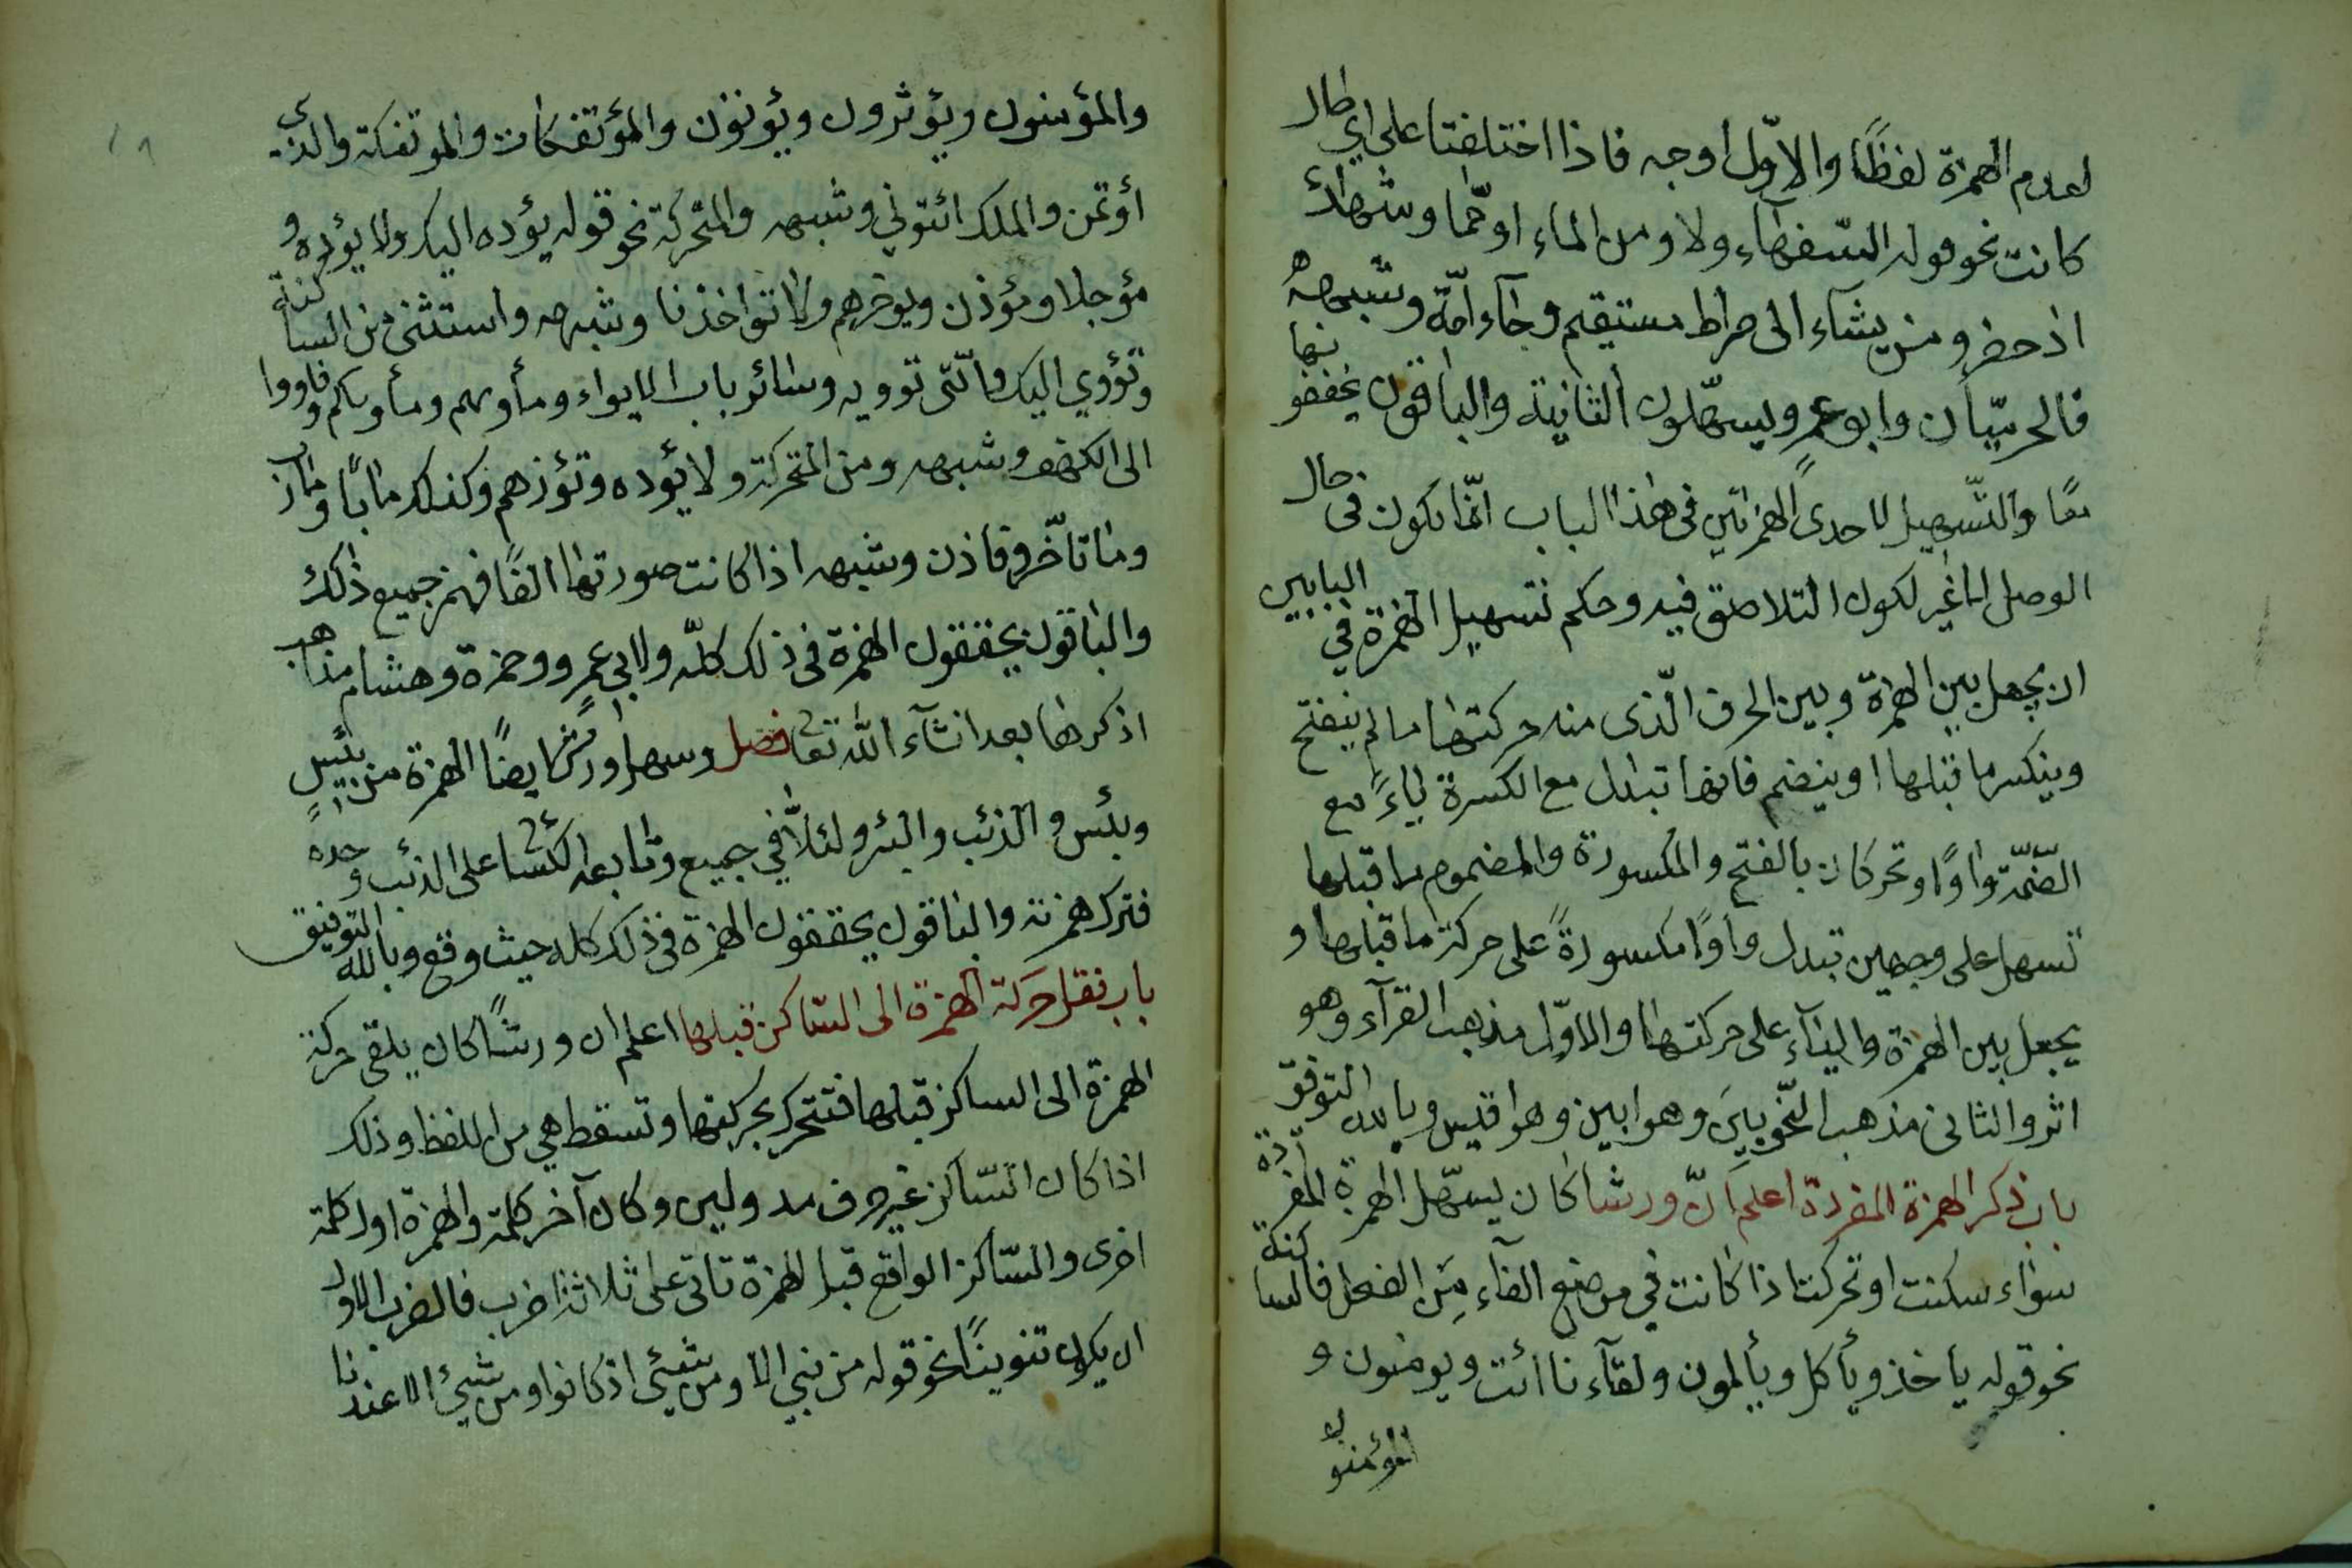 لعدم الهمزة لفظًا والاوّل اوجه فاذا اختلفتا على اي حال
كانت نحو قوله السفهاء ولا ومن الماء او ممّا وشهداء
اذ حضر ومن يشآء الى صراط مستقيم وجآء امّة وشبهه
فالحرميّان وابو عمرو يسهّلون الثانية والباقون يخففونها
معًا والتسهيل لاحدى الهمزتين في هذا الباب انّما يكون في حال
الوصل لا غير لكون التلاصق فيه وحكم تسهيل الهمزة في البابين
ان يجعل بين الهمزة وبين الحرف الّذى منه حركتها ما لم ينفتح
وينكسر ما قبلها او ينضم فانها تبدل مع الكسرة ياءً مع
الضّمّة واوًا وتحركان بالفتح والمكسورة والمضموم ما قبلها
تسهل على وجهين تبدل واوًا مكسورةً على حركة ما قبلها و
يجعل بين الهمزة واليآء على حركتها والاوّل مذهب القرآء وهو
اثر والثانى مذهب النّحويين وهو ابين وهو اقيس وبالله التوفيق
باب ذكر الهمزة المفردة اعلم انّ ورشا كان يسهّل الهمزة المفردة
سواء سكنت او تحركت اذا كانت في موضع الفاء من الفعل فالساكنة
نحو قوله ياخذ ويأكل ويألمون ولقآءنا ائت ويومنون و
المؤمنون
والمؤمنون ويؤثرون ويؤتون والمؤتفكات والموتفكة والذي
أؤتمن والملك ائتوني وشبهه والمتحركة نحو قوله يؤده اليك ولا يؤده و
مؤجلا ومؤذن ويوخرهم ولا تواخذنا وشبهه واستثنى من الساكنة
وتؤوي اليك والّتى توويه وسائر باب الايواء ومأويهم ومأويكم وفاووا
الى الكهف وشبهه ومن المتحركة ولا يؤده وتؤزهم وكذلك مابًا ومارب
وما تاخّر وفاذن وشبهه اذا كانت صورتها الفًا فهمز جميع ذلك
والباقون يحققون الهمزة فى ذلك كلّه ولابي عمرو وحمزة وهشام مذاهب
اذكرها بعد انشآء الله تعا فصل وسهل ورش ايضًا الهمزة من بئيس
وبئس والذئب والبئر ولئلّا في جميع وتابعه الكسائى على الذئب وحده
فترك همزته والباقون يحققون الهمزة في ذلك كله حيث وقع وبالله التوفيق
باب نقل حركة الهمزة الى الساكن قبلها اعلم ان ورشًا كان يلقى حركة
الهمزة الى الساكن قبلها فتتحرك بحركتها وتسقط هي من اللفظ وذلك
اذا كان السّاكن غير حرف مد ولين وكان آخر كلمة والهمزة اول كلمة
اخرى والسّاكن الواقع قبل الهمزة تاتى على ثلاثة اضرب فالضرب الاول
ان يكون تنوينًا نحو قوله من نبي الا ومن شيئ اذ كانوا ومن شيئ الا عندنا